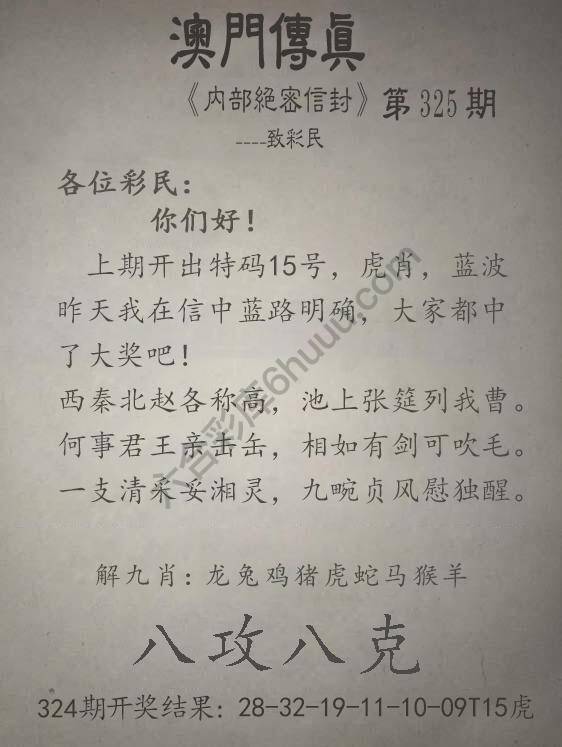 澳門傳真
《内部絕密信封》第325期
----致彩民
各位彩民：
你们好！
上期开出特码15号，虎肖，蓝波
昨天我在信中蓝路明确，大家都中
了大奖吧！
西秦北赵各称高，池上张筵列我曹。
何事君王亲击缶，相如有剑可吹毛。
一支清采妥湘灵，九畹贞风慰独醒。
解九肖：龙兔鸡猪虎蛇马猴羊
八攻八克
324期开奖结果：28-32-19-11-10-09T15虎
六合彩库6huuu.com